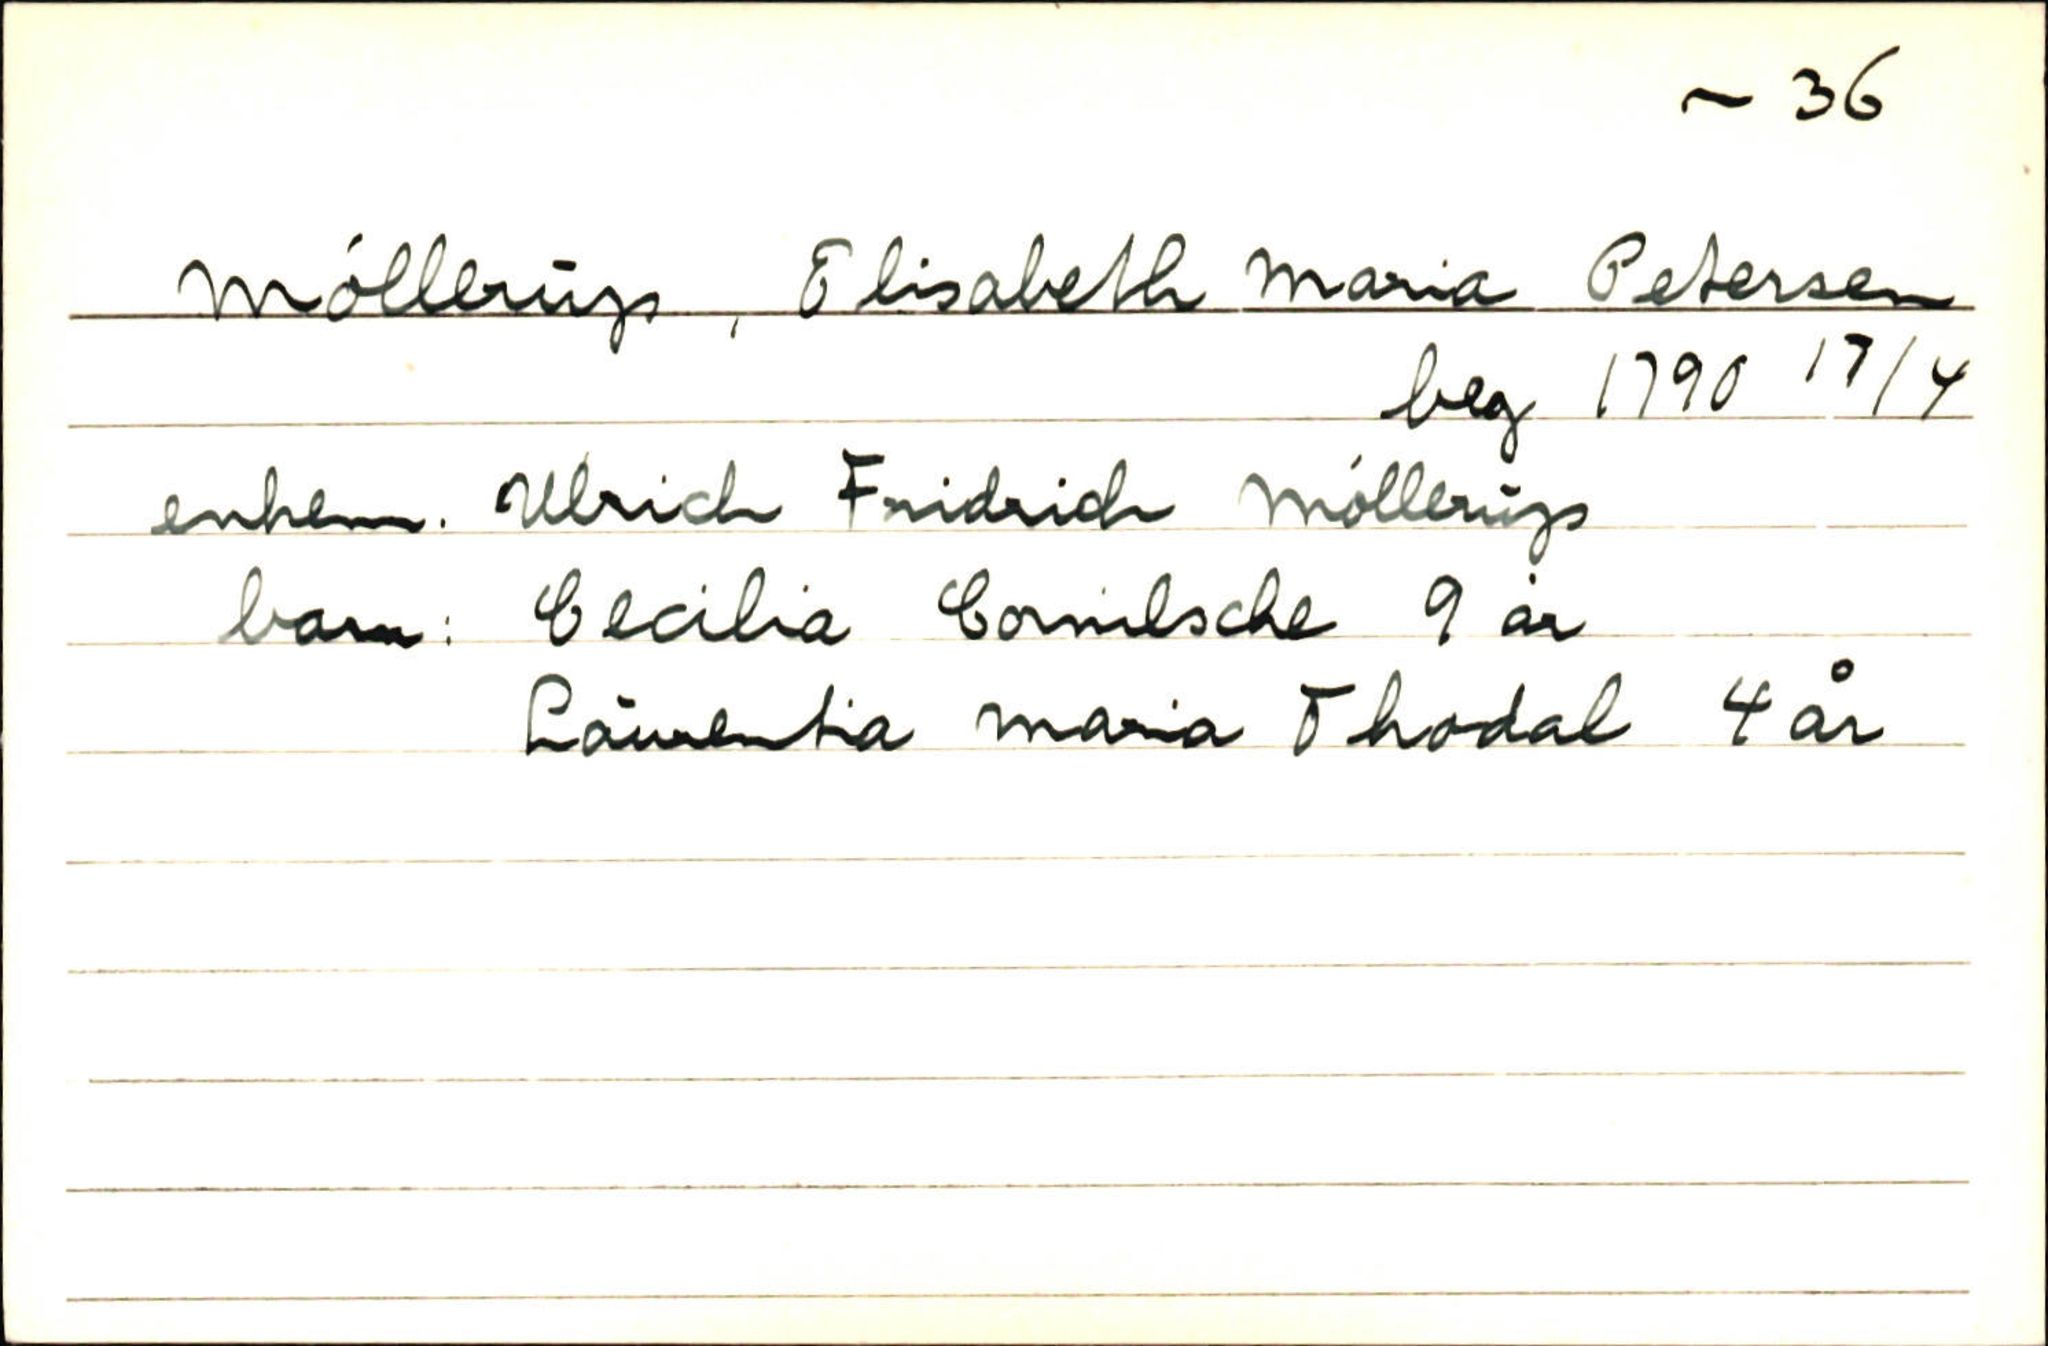 ~ 36
Möllerüp, Elisabeth Maria Petersen
beg 1790 17/4
enkem. Ulrich Fridrich Möllerüp
barn: Cecilia Cornilsche 9 år
Laürentia Maria Thodal 4 år